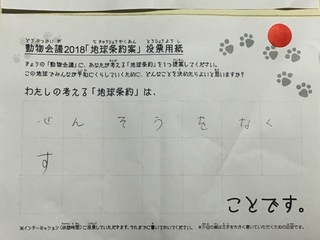 どうぶつかいぎ ちきゅうじょうやくあん とうひょうようし
動物会議2018「地球条約案」投票用紙
きょうの「動物会議」に、あなたが考える「地球条約」を1つ提案してください。
この地球でみんなが平和にくらしていくために、どんなことを決めたらよいと思いますか?
わたしの考える「地球条約」は、
せんそうをなく
す
ことです。
※インターミッション(休憩時間)に投票していただきます。